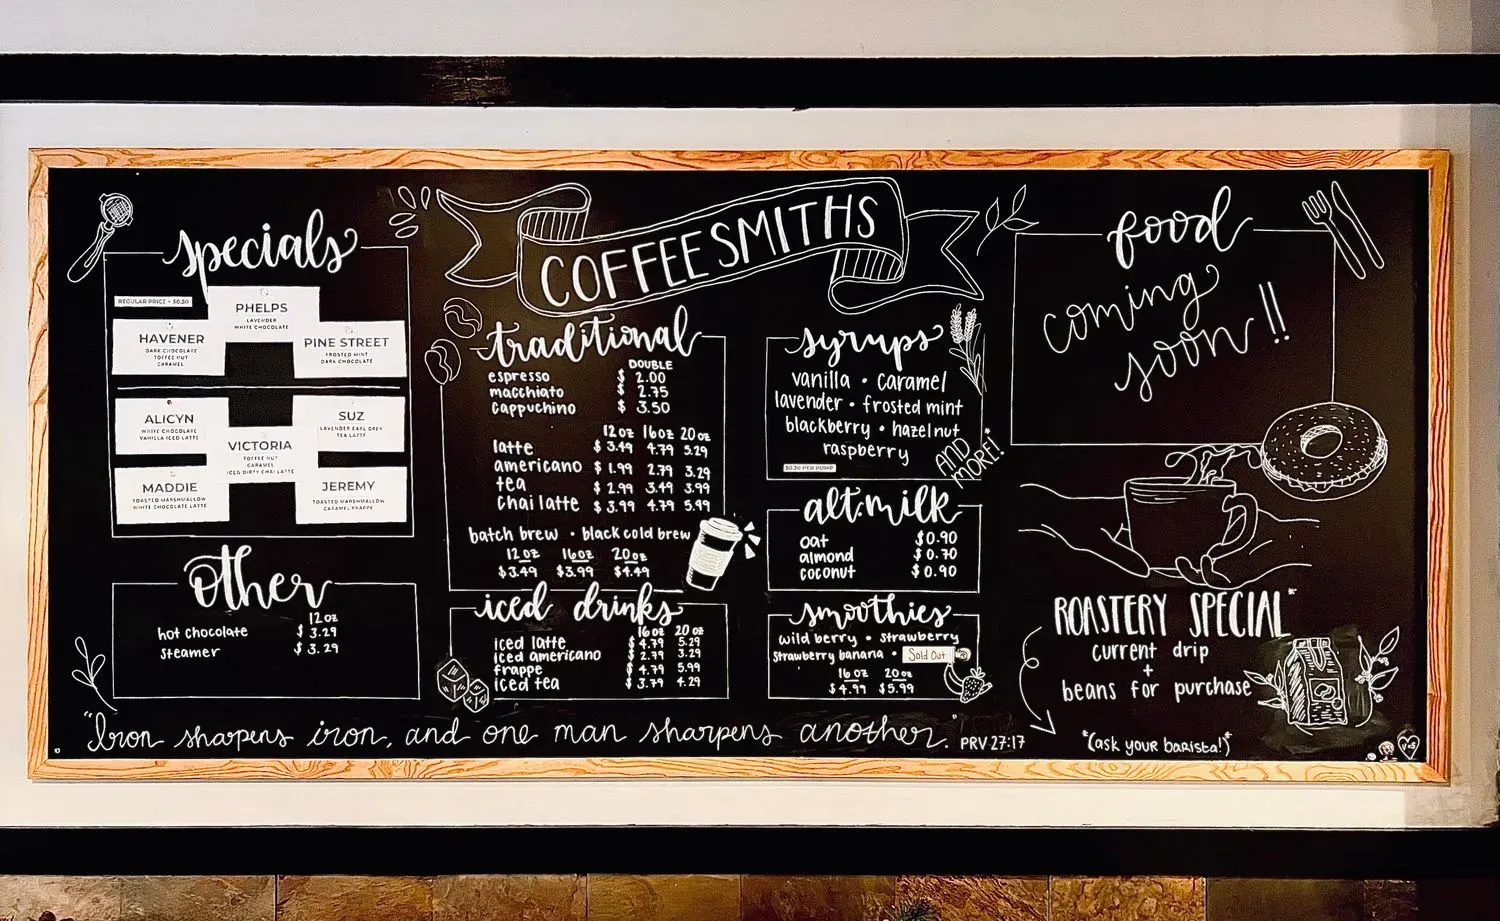 COFFEESMITHS
specials
REGULAR PRICE + $0.50
PHELPS
LAVENDER
WHITE CHOCOLATE
HAVENER
DARK CHOCOLATE
TOFFEE NUT
CARAMEL
PINE STREET
FROSTED MINT
DARK CHOCOLATE
ALICYN
WHITE CHOCOLATE
VANILLA ICED LATTE
SUZ
LAVENDER EARL GREY
TEA LATTE
VICTORIA
TOFFEE NUT
CARAMEL
ICED DIRTY CHAI LATTE
MADDIE
TOASTED MARSHMALLOW
WHITE CHOCOLATE LATTE
JEREMY
TOASTED MARSHMALLOW
CARAMEL FRAPPE
other
12oz
hot chocolate $3.29
steamer $3.29
traditional
DOUBLE
espresso $2.00
macchiato $2.75
cappuchino $3.50
12oz 16oz 20oz
latte $3.49 4.79 5.29
americano $1.99 2.79 3.29
tea $2.99 3.49 3.99
chai latte $3.99 4.79 5.99
batch brew • black cold brew
12oz 16oz 20oz
$3.49 $3.99 $4.49
iced drinks
16oz 20oz
iced latte $4.79 5.29
iced americano $2.79 3.29
frappe $4.79 5.99
iced tea $3.79 4.29
syrups
vanilla • caramel
lavender • frosted mint
blackberry • hazelnut
raspberry
AND MORE!*
$0.30 PER PUMP
alt. milk
oat $0.90
almond $0.70
coconut $0.90
smoothies
wild berry • strawberry
strawberry banana • Sold Out
16oz 20oz
$4.99 $5.99
food
coming
soon!!
ROASTERY SPECIAL*
current drip
+
beans for purchase
*(ask your barista!)
V+S
"Iron sharpens iron, and one man sharpens another." PRV 27:17